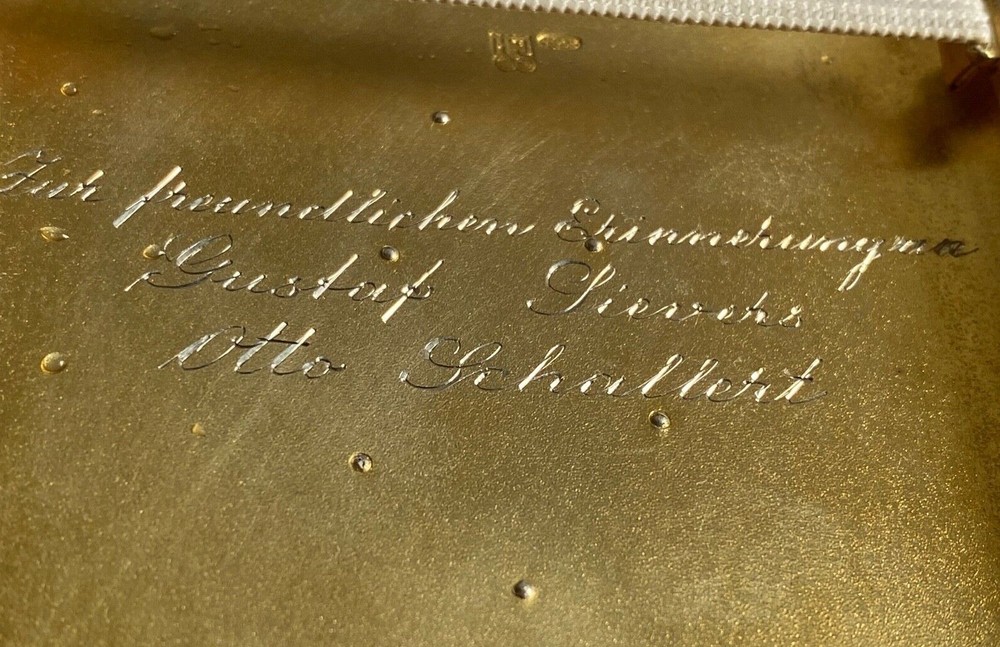 Zur freundlichen Erinnerung an
Gustaf Sievers
Otto Schallert